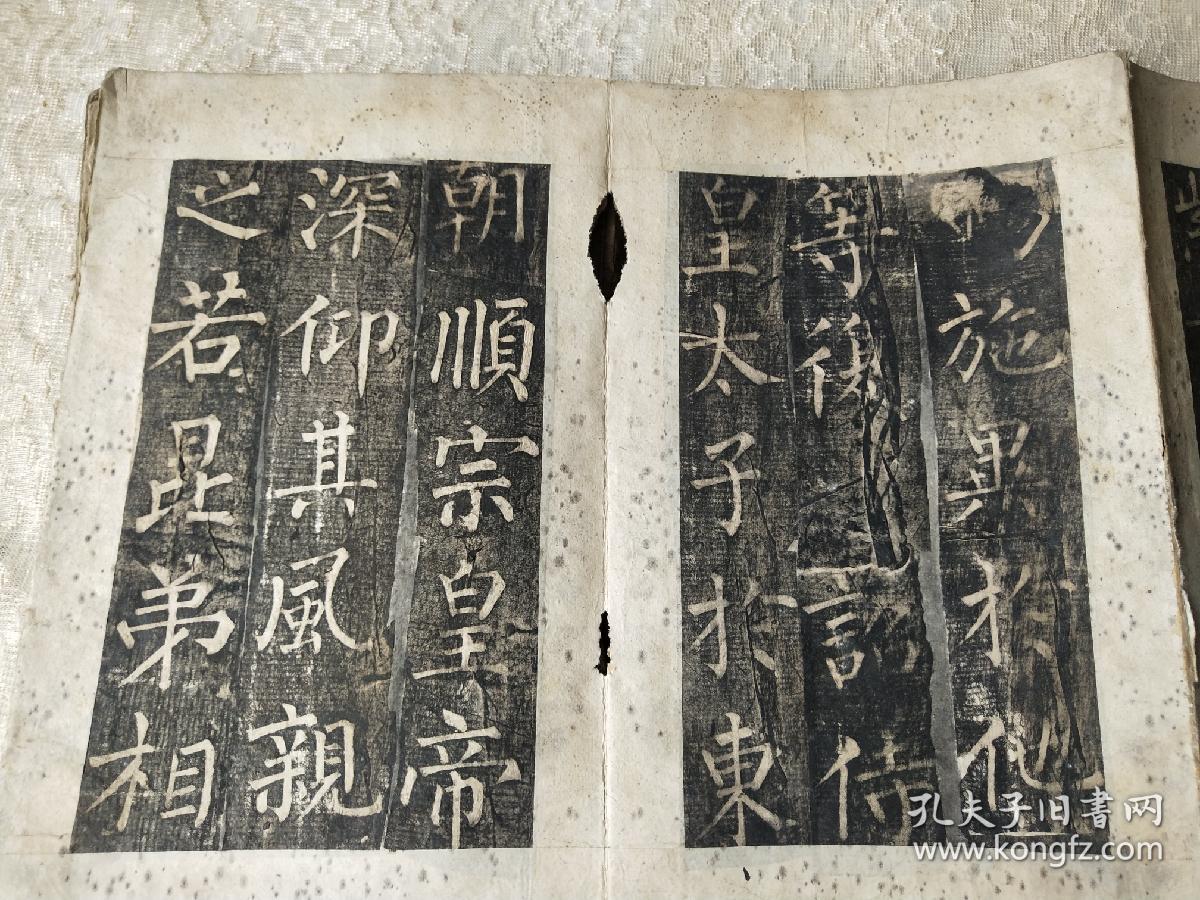 施異於他
等復詔侍
皇太子於東
朝順宗皇帝
深仰其風親
之若昆弟相
孔夫子旧書网
www.kongfz.com